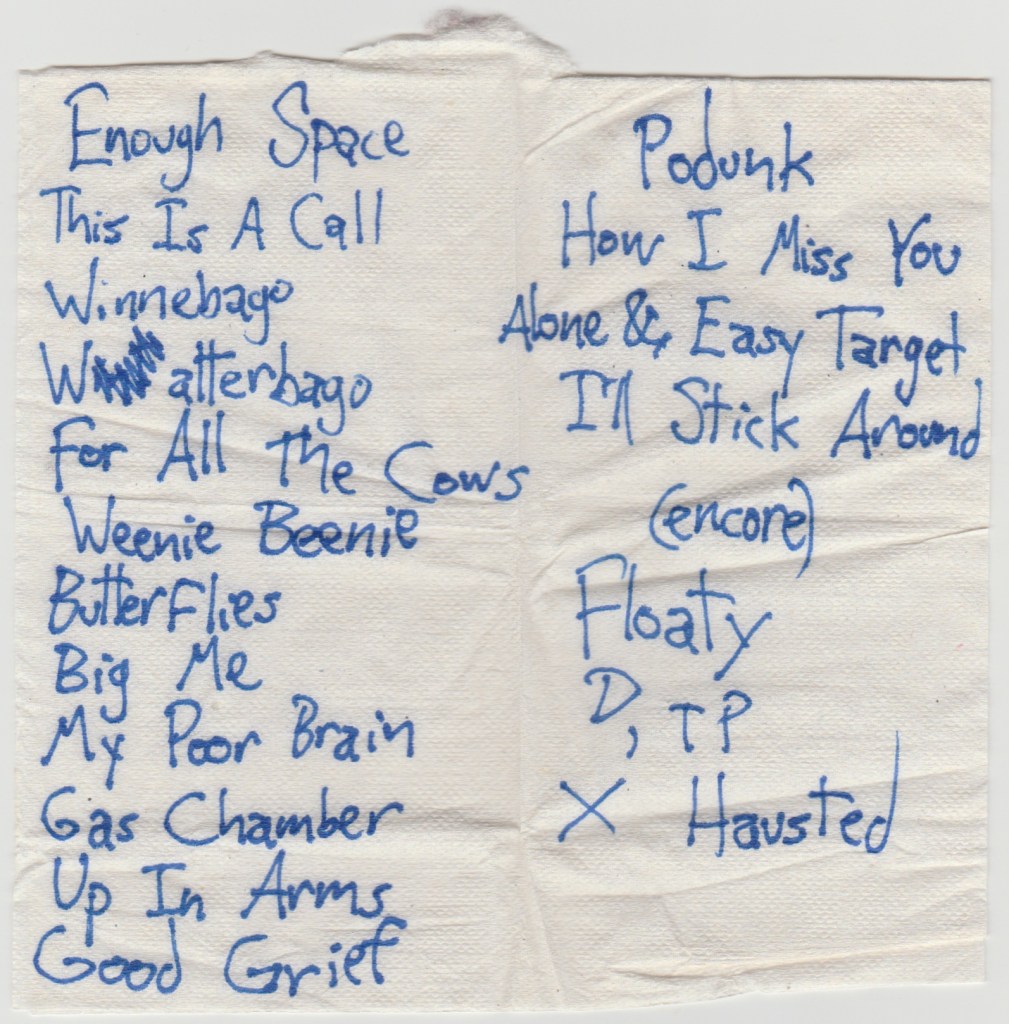 Enough Space
This Is A Call
Winnebago
Watterbago
For All The Cows
Weenie Beenie
Butterflies
Big Me
My Poor Brain
Gas Chamber
Up In Arms
Good Grief
Podunk
How I Miss You
Alone & Easy Target
I'll Stick Around
(encore)
Floaty
D, TP
X Hausted